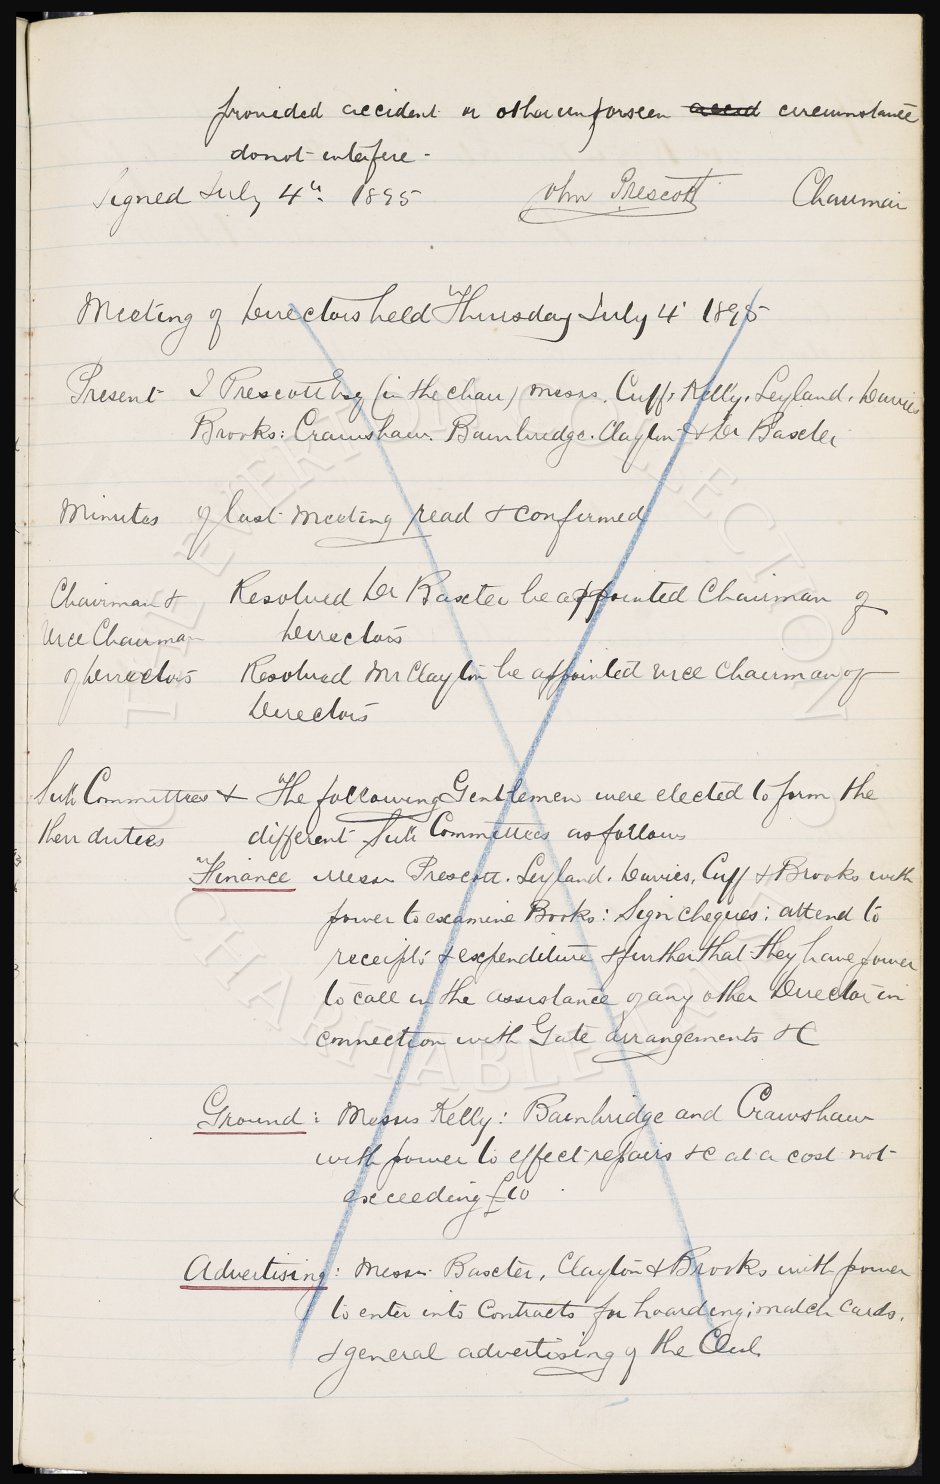 provided accident or other unforseen accid circumstance
do not interfere -
Signed July 4th 1895 John Prescott Chairman
Meeting of Directors held Thursday July 4' 1895
Present J Prescott Esq (in the chair) Messrs. Cuff, Kelly, Leyland, Davies
Brooks: Crawshaw. Bainbridge. Clayton & Dr Baxter
Minutes of last meeting read & confirmed
Chairman & Resolved Dr Baxter be appointed Chairman of
Vice Chairman Directors
of Directors Resolved Mr Clayton be appointed Vice Chairman of
Directors
Sub Committees & The following Gentlemen were elected to form the
their duties different Sub Committees as follows
Finance Messrs Prescott. Leyland. Davies, Cuff & Brooks with
power to examine Books: Sign cheques; attend to
receipts & expenditure & further that they have power
to call in the assistance of any other Director in
connection with Gate arrangements &c
Ground: Messrs Kelly: Bainbridge and Crawshaw
with power to effect repairs &c at a cost not
exceeding £10
Advertising: Messrs. Baxter, Clayton & Brooks with power
to enter into Contracts for hoarding; match cards,
& general advertising of the Club
THE EVERTON COLLECTION
CHARITABLE TRUST